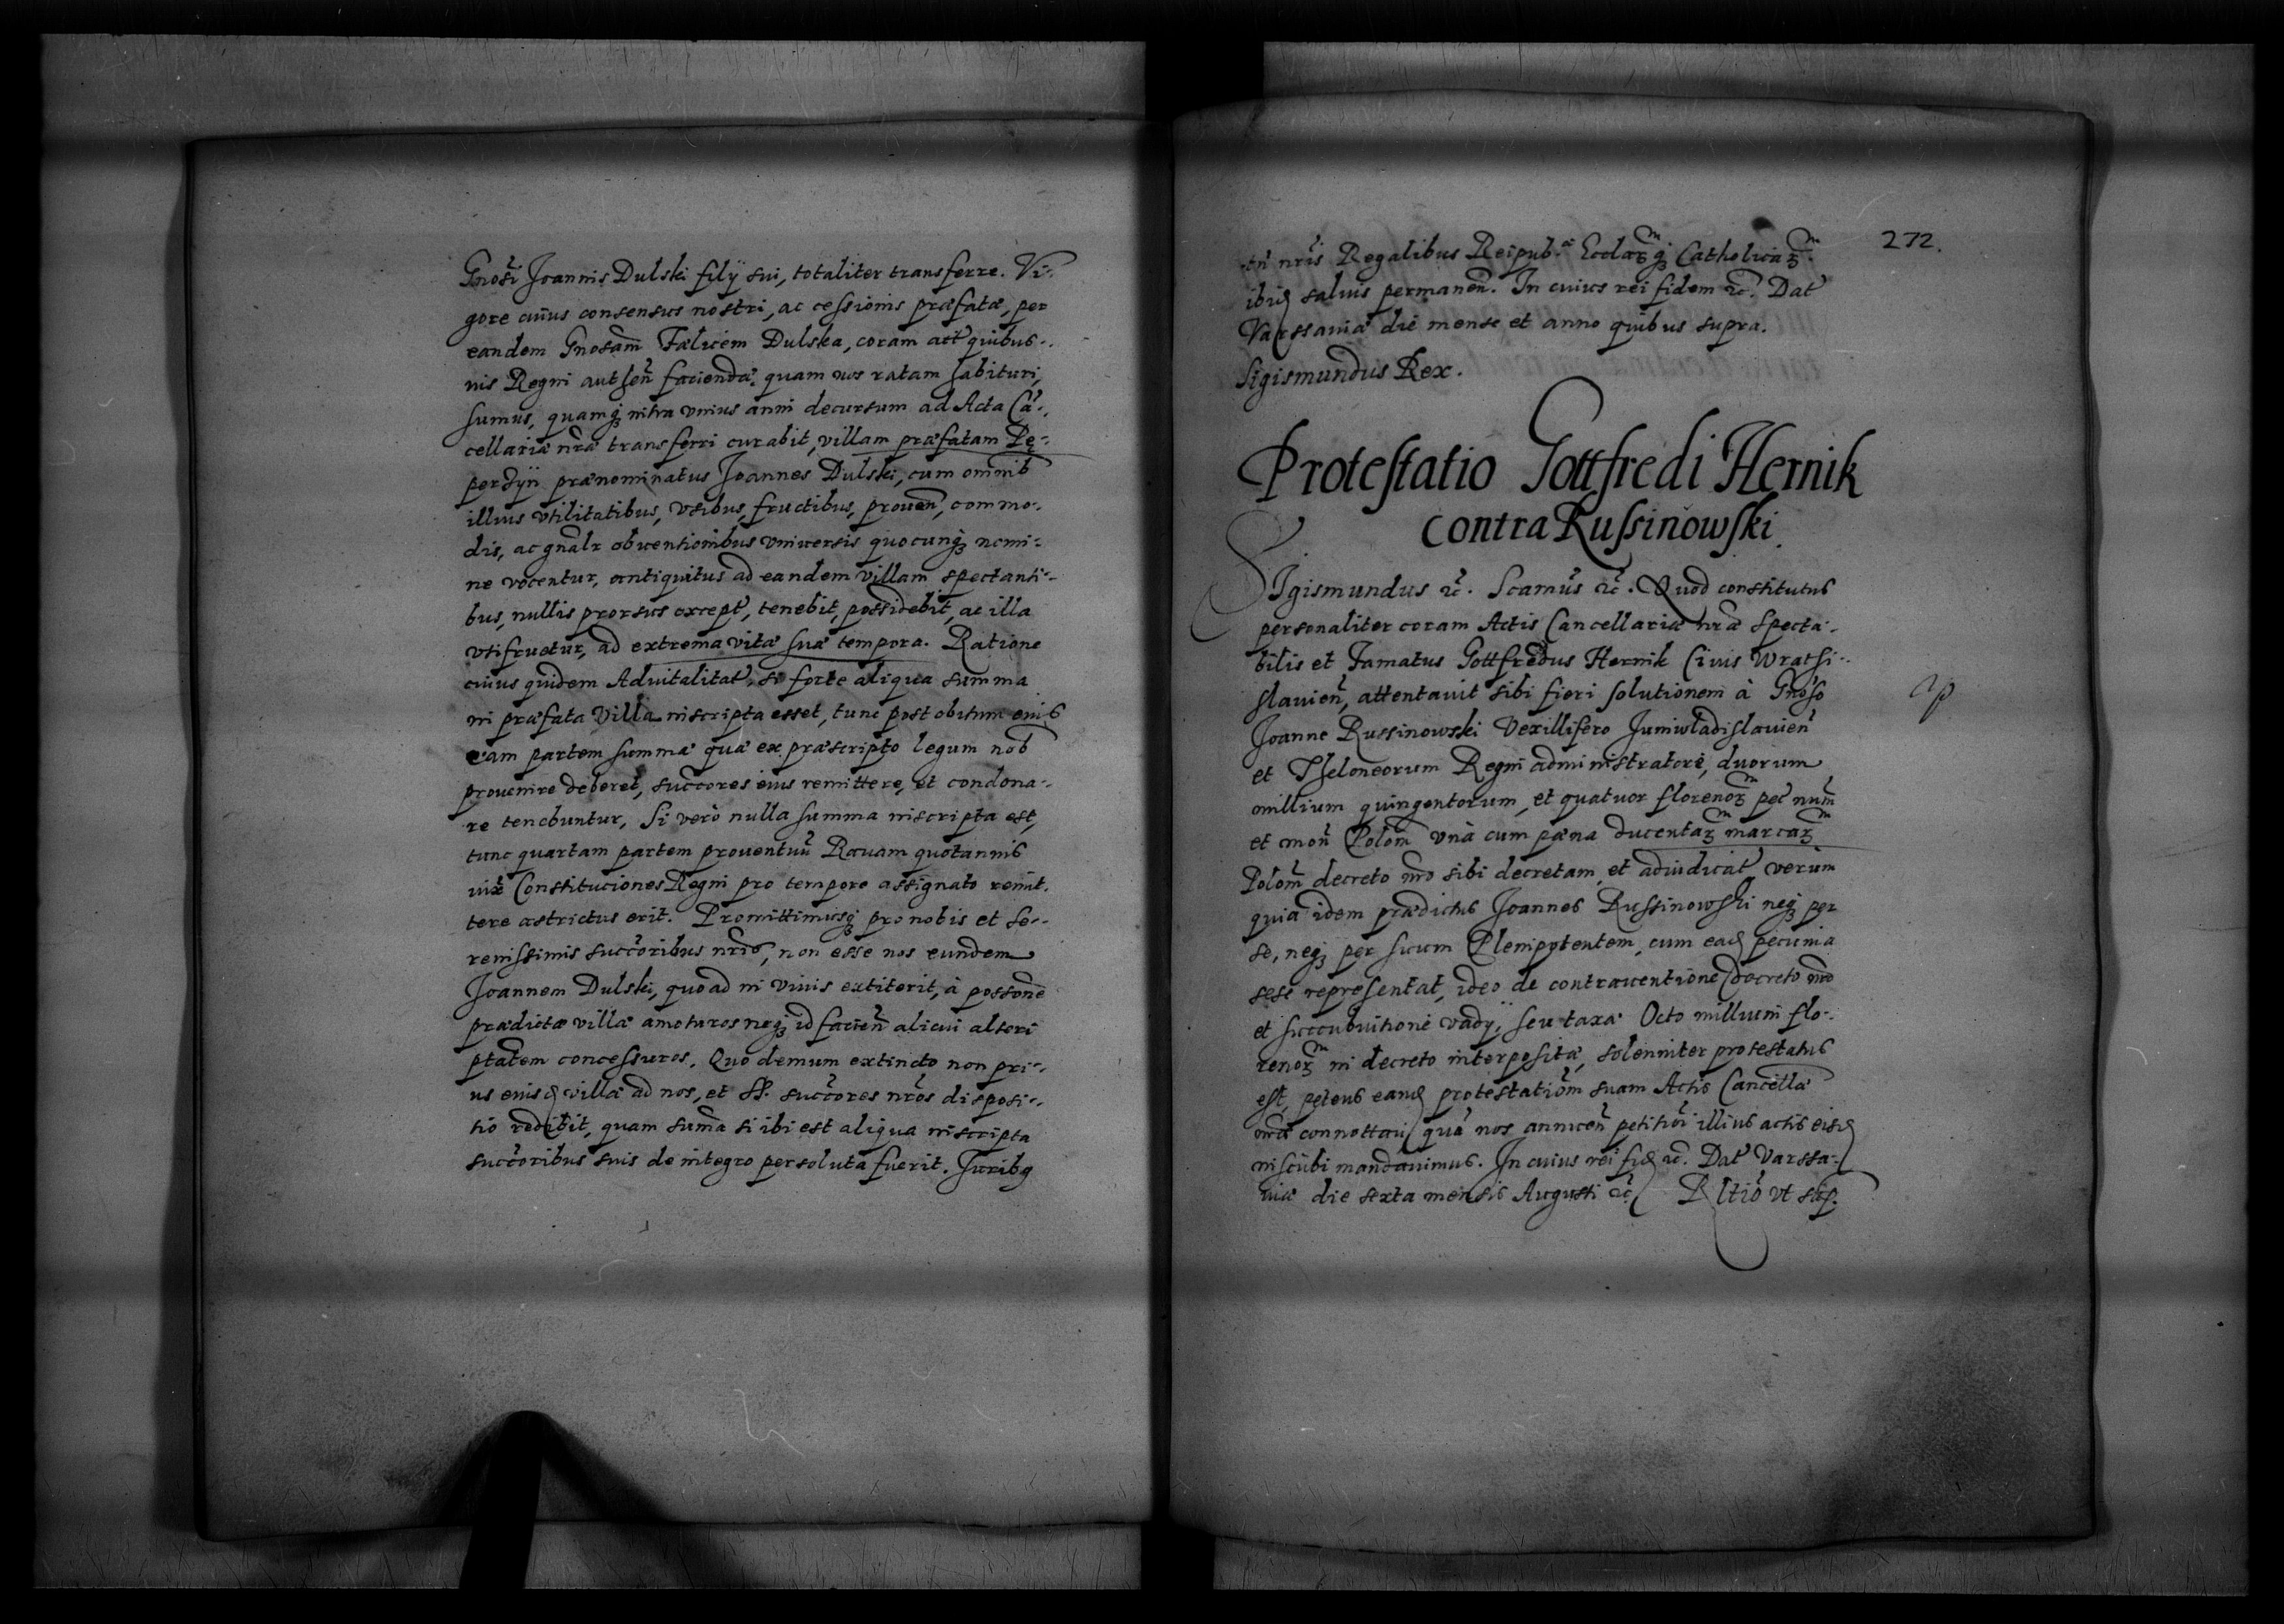 Gnosi Joannis Dulski filÿ sui, totaliter transferre. Vi-
gore cuius consensus nostri, ac cessionis præfatæ, per
eandem Gnosam Fælicem Dulska, coram act quibus-
uis Regni authen faciendæ, quam nos ratam habituri,
sumus, quamq intra vnius anni decursum ad Acta Cã-
cellariæ nræ transferri curabit, villam præfatam Pę-
perzÿn prænominatus Joannes Dulski, cum omnib
illius vtilitatibus, vsibus, fructibus, prouen, commo-
dis, ac gnalr obuentionibus vniuersis quocunq nomi-
ne vocentur, antiquitus ad eandem villam spectanti-
bus, nullis prorsus except, tenebit, possidebit, ac illa
vtifruetur, ad extrema vitæ suæ tempora. Ratione
cuius quidem Aduitalitat, si forte aliqua summa
in præfata Villa inscripta esset, tunc post obitum eius
eam partem summæ quæ ex præscripto legum nob
prouenire deberet, succores eius remittere, et condona-
re tenebuntur, Si verò nulla summa inscripta est,
tunc quartam partem prouentuũ Rauam quotannis
iux Constituciones Regni pro tempore assignato remit-
tere astrictus erit. Promittimusq pro nobis et Se-
renissimis succoribus nris, non esse nos eundem
Joannem Dulski, quoad in viuis extiterit, à possone
prædictæ villæ amoturos neq id facien alicui alteri
ptatem concessuros. Quo demum extincto non pri-
us eiusd villæ ad nos, et SS. succores nros disposi-
tio redibit, quam suma si ibi est aliqua inscripta
succoribus suis de integro persoluta fuerit. Juribq
272.
tn nris Regalibus Reipub. Ecclarq Catholicar
ibid saluis permanen. In cuius rei fidem &c. Dat
Varssauiæ die mense et anno quibus supra.
Sigismundus Rex.
Protestatio Gottfredi Hernik
contra Russinowski.
Sigismundus &c. Scamus &c. Quod constitutus
personaliter coram Actis Cancellariæ nræ Specta-
bilis et Famatus Gottfredus Hernik Ciuis Wrathi-
slauien, attentauit sibi fieri solutionem à Gnoso
Joanne Russinowski Vexillifero Juniwladislauien
et Theloneorum Regni administratore, duorum
millium quingentorum, et quatuor florenor pec num
et mon Polom vnà cum pæna ducentar marcar
Polom decreto nro sibi decretam, et adiudicat verùm
quia idem prædictus Joannes Russinowski neq per
se, neq per suum Plenipotentem, cum ead pecunia
sese representat, ideo de contrauentione decreto nro
et succubuitione vadÿ, seu taxæ Octo millium flo-
renor in decreto interpositæ, solenniter protestatus
est, petens eand protestationem suam Actis Cancellæ
nræ connottari quã nos annuen petitioi illius actis eisd
inscribi mandauimus. In cuius rei fid &c. Dat Varssa-
uiæ die sexta mensis Augusti &c. Rltio vt sup.